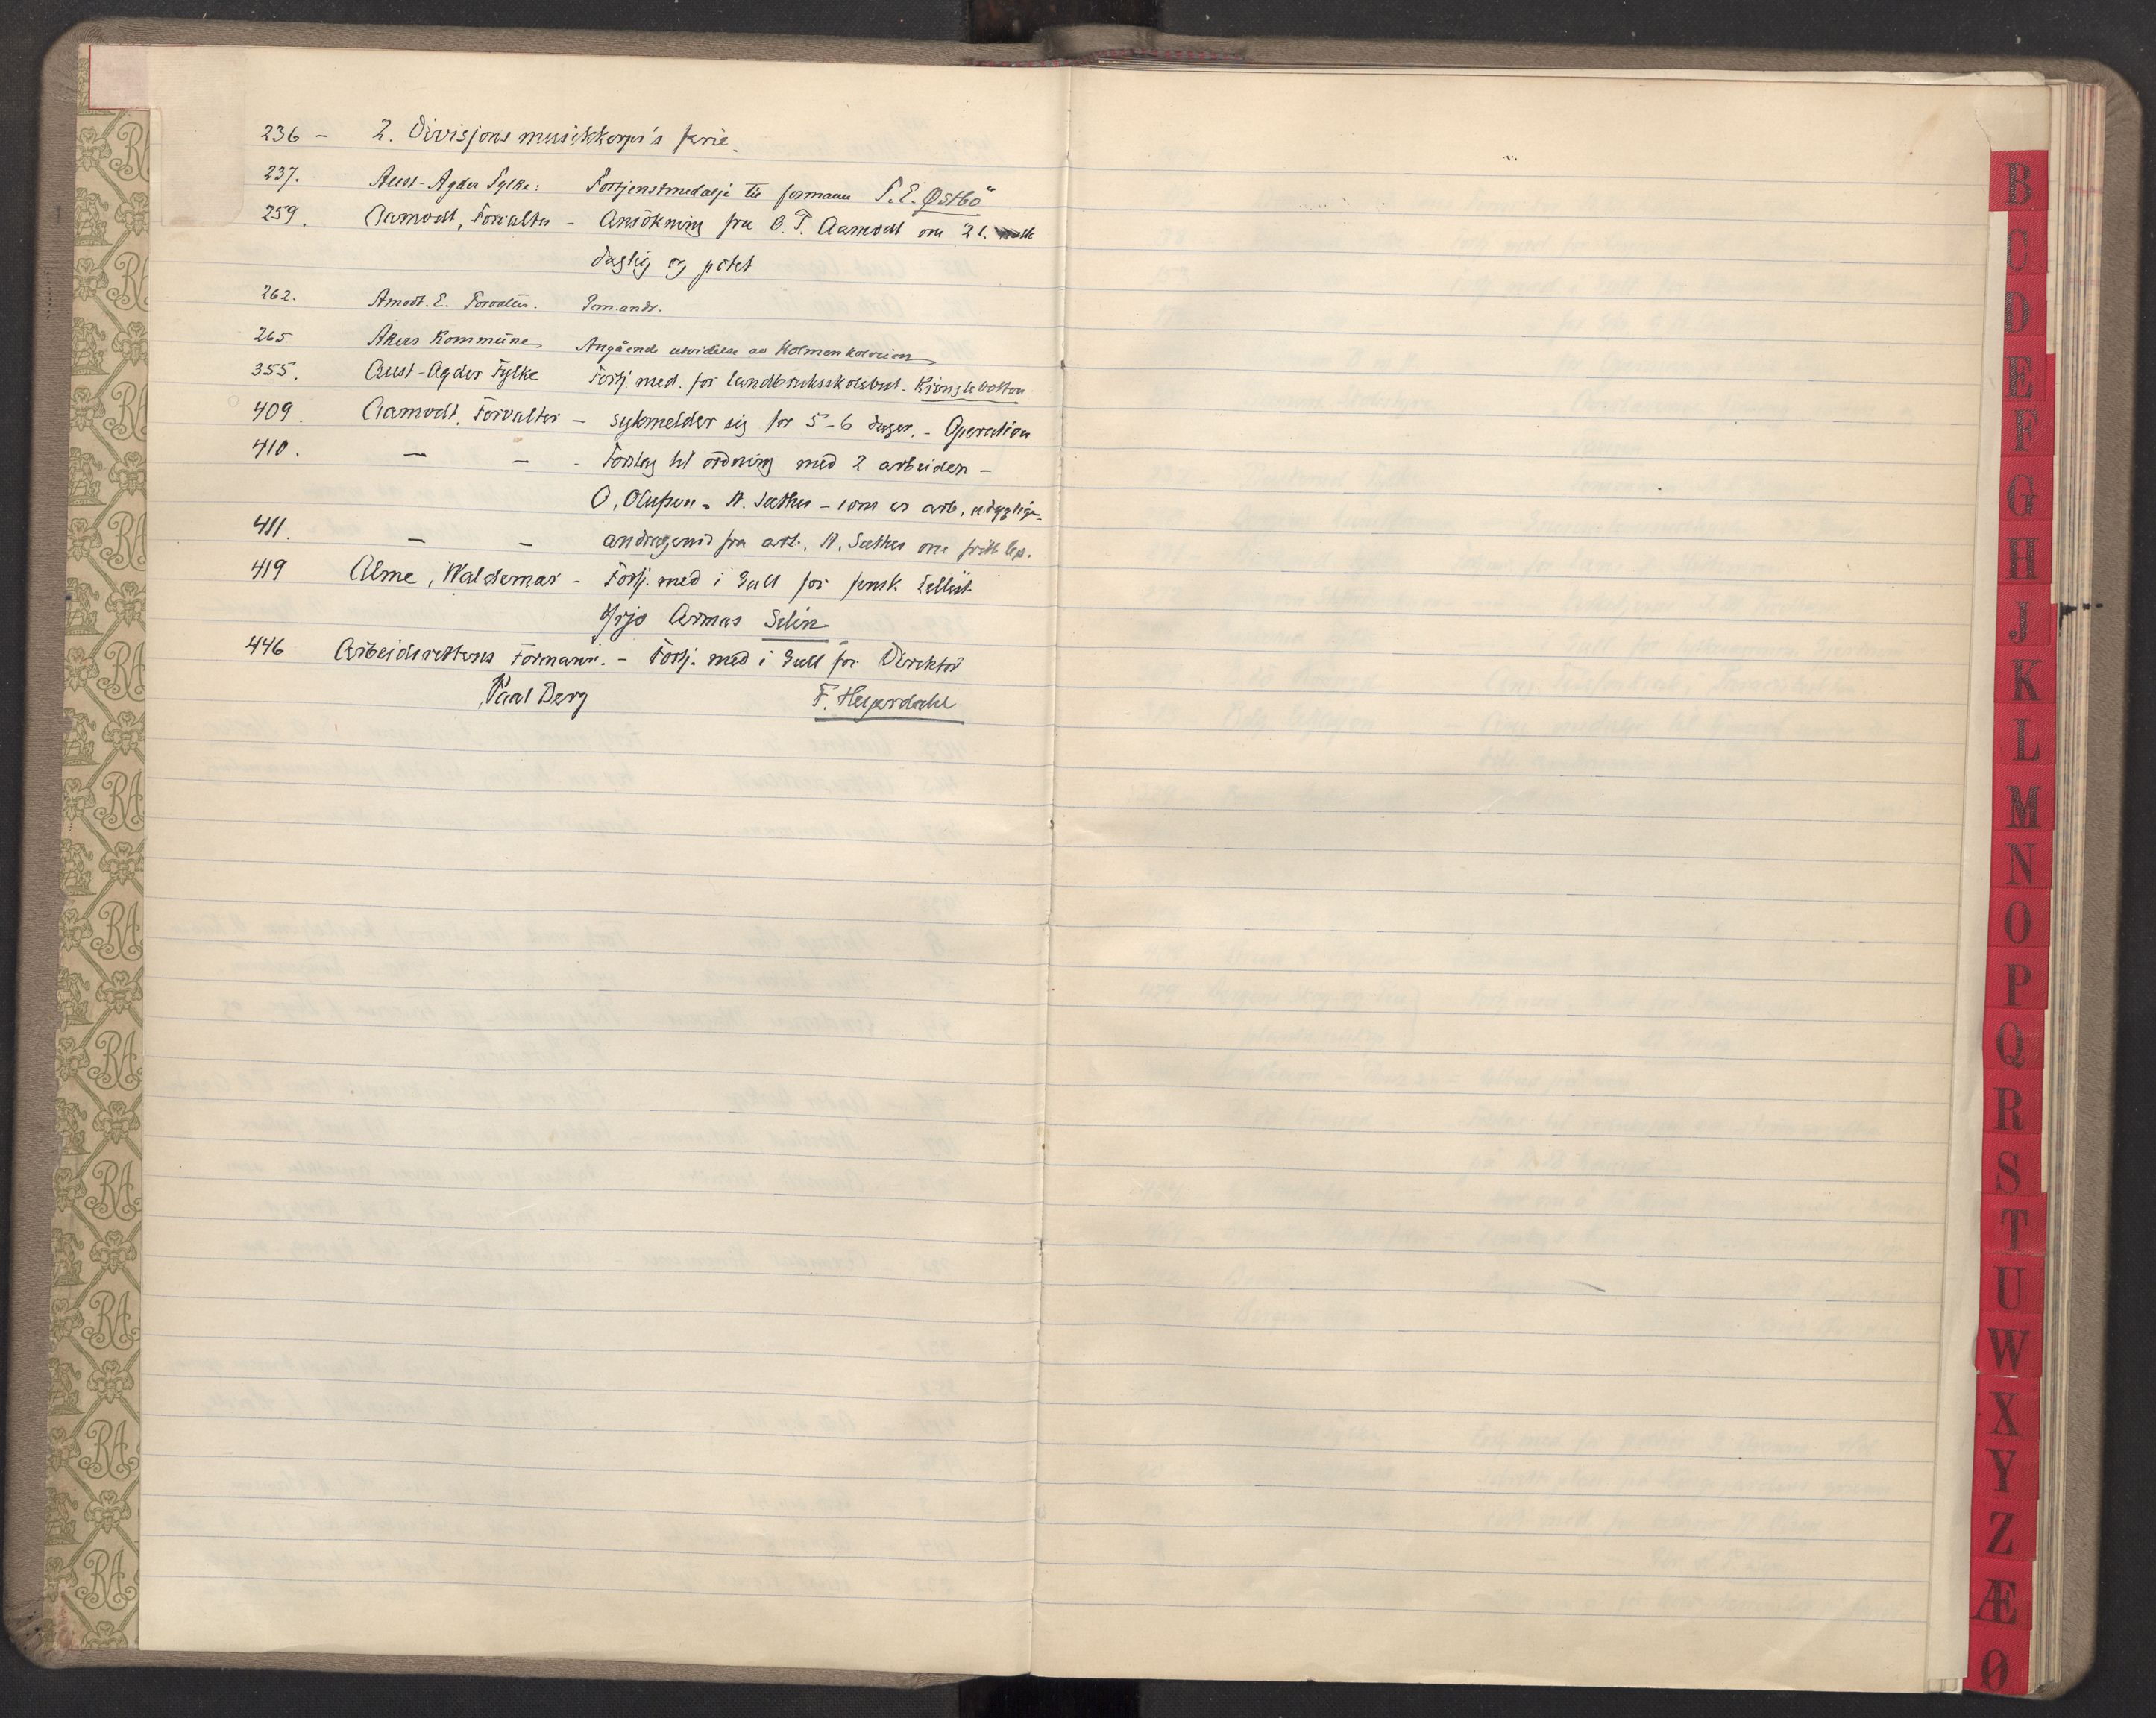 236 – 2. Divisjons musikkorps's ferie.
237. Aust-Agder Fylke: Fortjenstmedalje til formann T. E. Østbö
259. Aamodt, Forvalter – Ansökning fra O. T. Aamodt om 2 l.
daglig og potet
262. Amodt. E. Forvalter. Sem. andr.
265 Akers Kommune Angående utvidelse av Holmenkolveien
355. Aust-Agder Fylke Fortj. med. for landbruksskolebest.
409. Aamodt, Forvalter – sykmelder sig for 5-6 dager. – Operation
410. — — - Forslag til ordning med 2 arbeidere –
O, Olufsen - A. Sæther – som er arb. udyktige
411. — — andragende fra arb. A. Sæther om fritt
419 Alme, Waldemar – Fortj. med i Gull for finsk Cellist
Yrjo Armas Selin
446 Arbeidsrettens Formann. – Fortj. med i Gull for Direktör
Paal Berg F. Heyerdahl
B
C
D
E
F
G
H
J
K
L
M
N
O
P
Q
R
S
T
U
W
X
Y
Z
Æ
Ø